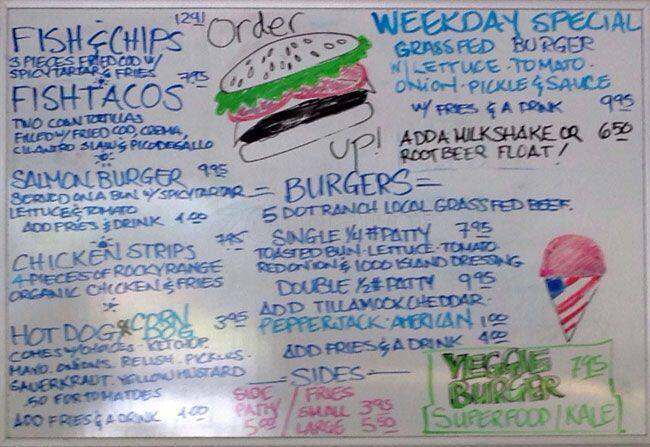 FISH & CHIPS 12.91
3 PIECES FRIED COD W/
SPICY TARTAR & FRIES 7.95
FISH TACOS
TWO CORN TORTILLAS
FILLED W/ FRIED COD, CREMA,
CILANTRO SLAW & PICO DE GALLO
SALMON BURGER 9.95
SERVED ON A BUN W/ SPICY TARTAR
LETTUCE & TOMATO
ADD FRIES & DRINK 4.00
CHICKEN STRIPS 7.95
4 PIECES OF ROCKY RANGE
ORGANIC CHICKEN & FRIES
HOT DOG & CORN DOG 3.95
COMES W/ CHOICES · KETCHUP
MAYO. ONIONS. RELISH. PICKLES.
SAUERKRAUT. YELLOW MUSTARD
.50 FOR TOMATOES
ADD FRIES & A DRINK 4.00
Order
UP!
WEEKDAY SPECIAL
GRASSFED BURGER
W/ LETTUCE · TOMATO ·
ONION · PICKLE & SAUCE
W/ FRIES & A DRINK 9.95
ADD A MILKSHAKE OR 6.50
ROOTBEER FLOAT!
= BURGERS =
5 DOT RANCH LOCAL GRASSFED BEEF.
SINGLE 1/4# PATTY 7.95
TOASTED BUN · LETTUCE · TOMATO
RED ONION & 1000 ISLAND DRESSING
DOUBLE 1/2# PATTY 9.95
ADD TILLAMOOK CHEDDAR ·
PEPPERJACK · AMERICAN 1.00
ADD FRIES & A DRINK 4.00
= SIDES
SIDE PATTY 5.00
FRIES
SMALL 3.95
LARGE 5.50
VEGGIE 7.95
BURGER
SUPERFOOD / KALE